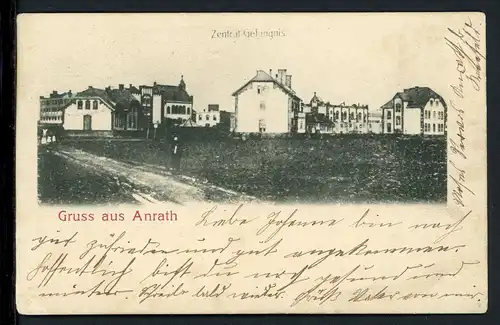 Zentral-Gefängnis
Gruss aus Anrath
Liebe Johanne bin noch
gut zufrieden und gut angekommen.
Hoffentlich bist du noch gesund und
munter Schreib bald wieder. Grüße Vater von mir